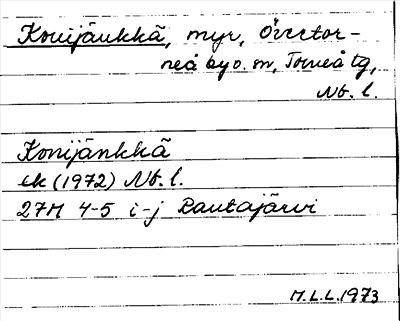 Konijänkkä, myr, Övertor-
neå by o. sn, Torneå tg,
Nb. l.
Konijänkkä
ek (1972) Nb. l.
27M 4-5 i-j Rautajärvi
M.L.L. 1973